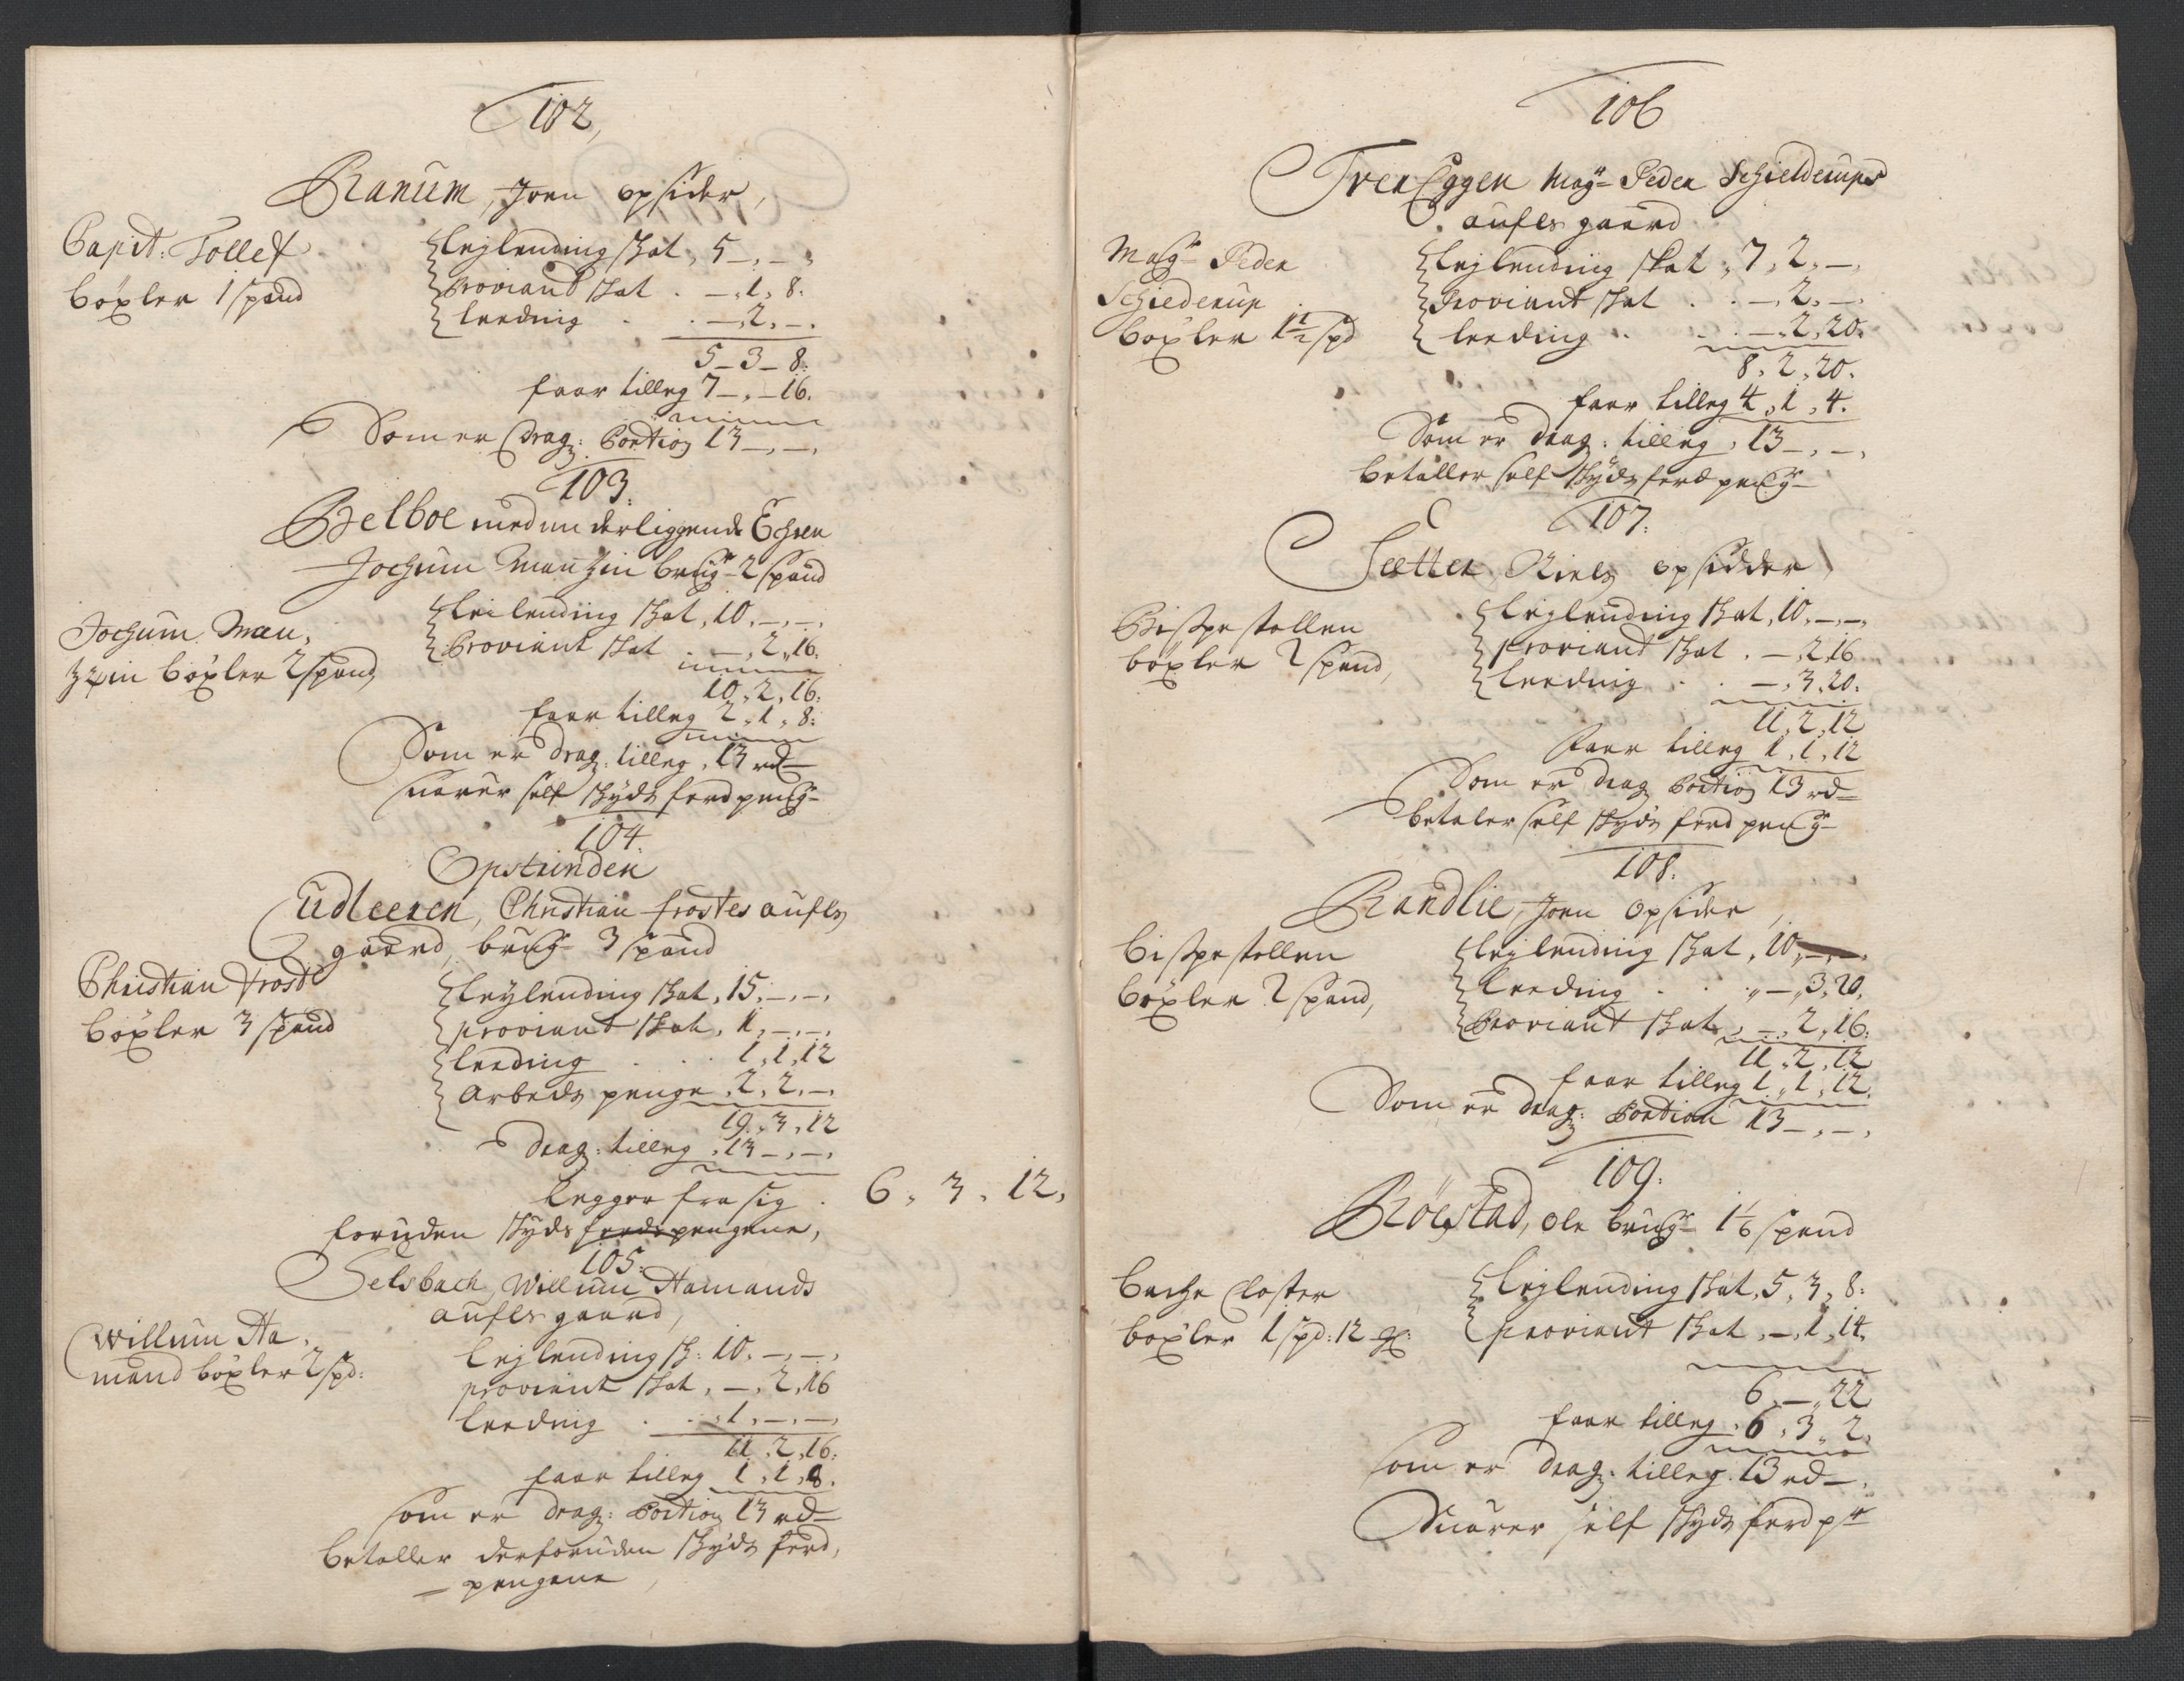 102,
Ranum, Joen opsider,
Capit: Tollef
böxler 1 spand
Leylending skat, 5 –, – ,
Proviand skat . –, 1, 8:
Leeding . . –, 2, –.
5 – 3 – 8:
faar tilleg 7 –, – 16.
Som er Drag: Portion 13 –, –,
103.
Belboe med underliggende Echren
Jochum brug 2 spand
Jochum
böxler 2 spand
Leilending skat, 10, –, –.
Proviant skat . –, 2, 16.
10, 2, 16:
faar tilleg 2, 1, 8:
Som er Drag: tilleg, 13 rd
suarer self skyds ferd peng
104.
Opstrinden
Udleeren, Christian Frostes aufls
gaard, brug 3 spand
Christian Frost
böxler 3 spand
Leylending skat, 15, –, –,
proviant skat, 1, –, –,
Leeding . . . 1, 1, 12
Arbeds penge, 2, 2, –,
19, 3, 12
Drag: tilleg, 13 –, –,
Legger fra sig . 6, 3, 12,
foruden skyds ferds pengene,
105.
Selsbach, Willum Hamands
aufls gaard,
Willum Ha,
mand böxler 2 spd:
Leylending sk: 10, –, –,
proviant skat, –, 2, 16
Leeding . . 1, –, –,
11, 2, 16:
faar tilleg 1, 1, 8.
som er Drag: Portion 13 rd
betaller derforuden skyds ferd,
– pengene,
106
Tven Eggen Mag Peder Schielderups
aufls gaard
Mag Peder
Schiederup
böxler 1½ spd
Leylending skat, 7, 2, –,
Proviant skat . . –, 2, –.
Leeding . . . –, 2, 20.
8, 2, 20.
faar tilleg 4, 1, 4.
Som er Drag: tilleg, 13 –, –,
betaller self skyds ferd peng
107.
Sætter, Niels opsidder,
Bispestollen
böxler 2 spand,
Leylending skat, 10, –, –,
proviand skat . –, 2, 16
Leeding . . –, 3, 20.
11, 2, 12
faar tilleg 1, 1, 12
Som er Drag Portion 13 rd
betaler self skyds ferd peng
108.
Randlie, Joen opsider,
Bispestollen
böxler 2 spand,
Leylending skat, 10, –, –.
Leeding . . –, 3, 20,
Proviant skat, –, 2, 16:
11, 2, 12
faar tilleg 1, 1, 12,
Som er Drag: Portion 13 –, –,
109.
Röestad, Ole brug 1⅙ spand
Bache Closter
böxler 1 spd: 12
Leylending skat, 5, 3, 8:
proviant skat, –, 1, 14,
6, –, 22
faar tilleg, 6, 3, 2,
som er Drag: tilleg. 13 rd
Suarer self skyds ferd p